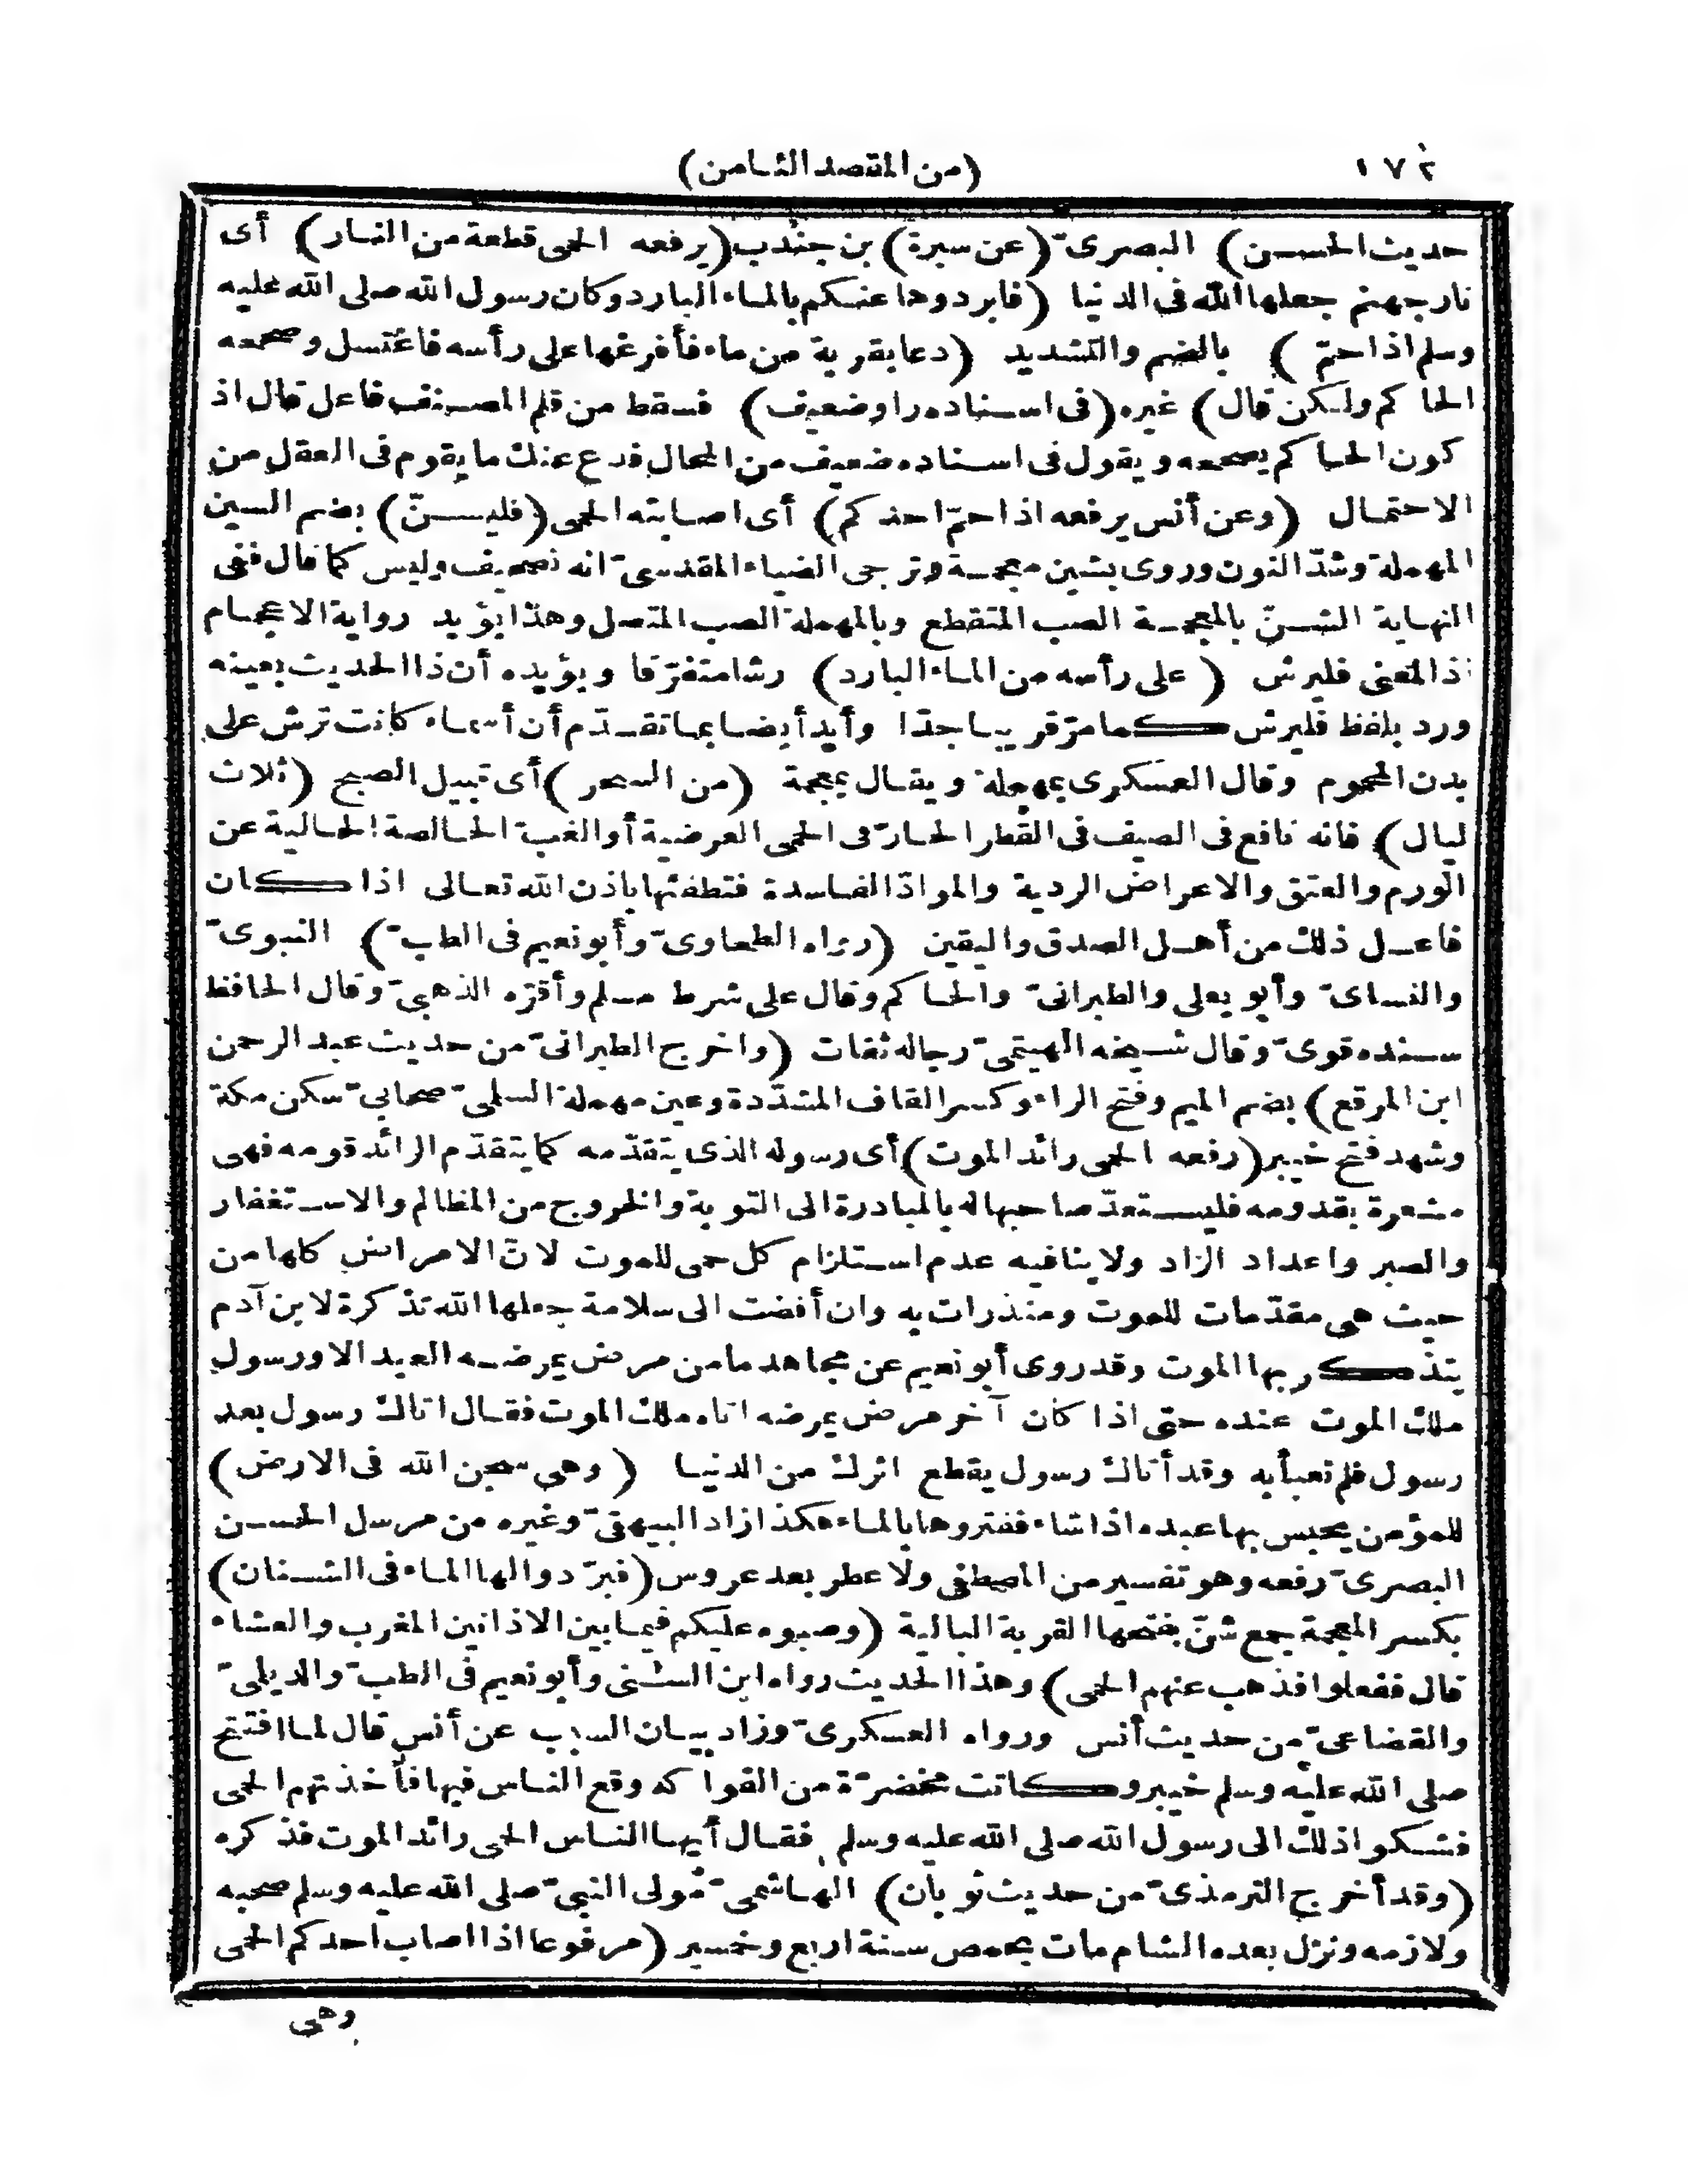 ١٧٢
(من المقصد الثامن)
حديث الحسن) البصرىّ (عن سمرة) بن جندب (يرفعه الحمى قطعة من النار) أى
نار جهنم جعلها الله فى الدنيا (فابردوها عنكم بالماء البارد وكان رسول الله صلى الله عليه
وسلم اذا حمّ) بالضم والتشديد (دعا بقربة من ماء فأفرغها على رأسه فاغتسل وصححه
الحاكم ولكن قال) غيره (فى اسناده راو ضعيف) فسقط من قلم المصنف فاعل قال اذ
كون الحاكم يصححه ويقول فى اسناده ضعيف من المحال فدع عنك ما يقوم فى العقل من
الاحتمال (وعن أنس يرفعه اذا حمّ احدكم) أى اصابته الحمى (فليسنّ) بضم السين
المهملة وشدّ النون وروى بشين معجمة وترجى الضياء المقدسىّ انه تصحيف وليس كما قال ففى
النهاية الشنّ بالمعجمة الصب المتقطع وبالمهملة الصب المتصل وهذا يؤيد رواية الاعجام
اذ المعنى فليرش (على رأسه من الماء البارد) رشا متفرّقا ويؤيده أن ذا الحديث بعينه
ورد بلفظ فليرش كما مرّ قريبا جدّا وأيد أيضا بما تقدّم أن أسماء كانت ترش على
بدن المحموم وقال العسكرى بمهملة ويقال بمعجمة (من السحر) أى قبيل الصبح (ثلاث
ليال) فانه نافع فى الصيف فى القطر الحارّ فى الحمى العرضية أو الغب الخالصة الخالية عن
الورم والعتق والاعراض الردية والموادّ الفاسدة فتطفئها باذن الله تعالى اذا كان
فاعل ذلك من أهل الصدق واليقين (رواه الطحاوىّ وأبو نعيم فى الطبّ) النبوىّ
والنساىّ وأبو يعلى والطبرانىّ والحاكم وقال على شرط مسلم وأقرّه الذهبىّ وقال الحافظ
سنده قوىّ وقال شيخه الهيتمىّ رجاله ثقات (واخرج الطبرانىّ من حديث عبد الرحمن
ابن المرقع) بضم الميم وفتح الراء وكسر القاف المشدّدة وعين مهملة السلمىّ صحابىّ سكن مكة
وشهد فتح خيبر (رفعه الحمى رائد الموت) أى رسوله الذى يتقدّمه كما يتقدّم الرائد قومه فهى
مشعرة بقدومه فليستعدّ صاحبها له بالمبادرة الى التوبة والخروج من المظالم والاستغفار
والصبر واعداد الزاد ولا ينافيه عدم استلزام كل حمى للموت لانّ الامراض كلها من
حيث هى مقدّمات للموت ومنذرات به وان أفضت الى سلامة جعلها الله تذكرة لابن آدم
يتذكر بها الموت وقد روى أبو نعيم عن مجاهد ما من مرض يمرضه العبد الا ورسول
ملك الموت عنده حتى اذا كان آخر مرض يمرضه اتاه ملك الموت فقال اتاك رسول بعد
رسول فلم تعبأ به وقد أتاك رسول يقطع اثرك من الدنيا (وهى سجن الله فى الارض)
للمؤمن يحبس بها عبده اذا شاء ففتروها بالماء هكذا زاد البيهقىّ وغيره من مرسل الحسن
البصرىّ رفعه وهو تفسير من المصطفى ولا عطر بعد عروس (فبرّدوا لها الماء فى الشنان)
بكسر المعجمة جمع شنّ بفتحها القربة البالية (وصبوه عليكم فيما بين الاذانين المغرب والعشاء
قال ففعلوا فذهب عنهم الحمى) وهذا الحديث رواه ابن السنى وأبو نعيم فى الطبّ والديلىّ
والقضاعىّ من حديث أنس ورواه العسكرىّ وزاد بيان السبب عن أنس قال لما افتتح
صلى الله عليه وسلم خيبر وكانت مخضرّة من الفواكه وقع الناس فيها فأخذتهم الحمى
فشكوا ذلك الى رسول الله صلى الله عليه وسلم فقال أيها الناس الحمى رائد الموت فذكره
(وقد أخرج الترمذىّ من حديث ثوبان) الهاشمىّ مولى النبىّ صلى الله عليه وسلم صحبه
ولازمه ونزل بعده الشام مات بحمص سنة اربع وخمسين (مرفوعا اذا اصاب احدكم الحمى
وهى